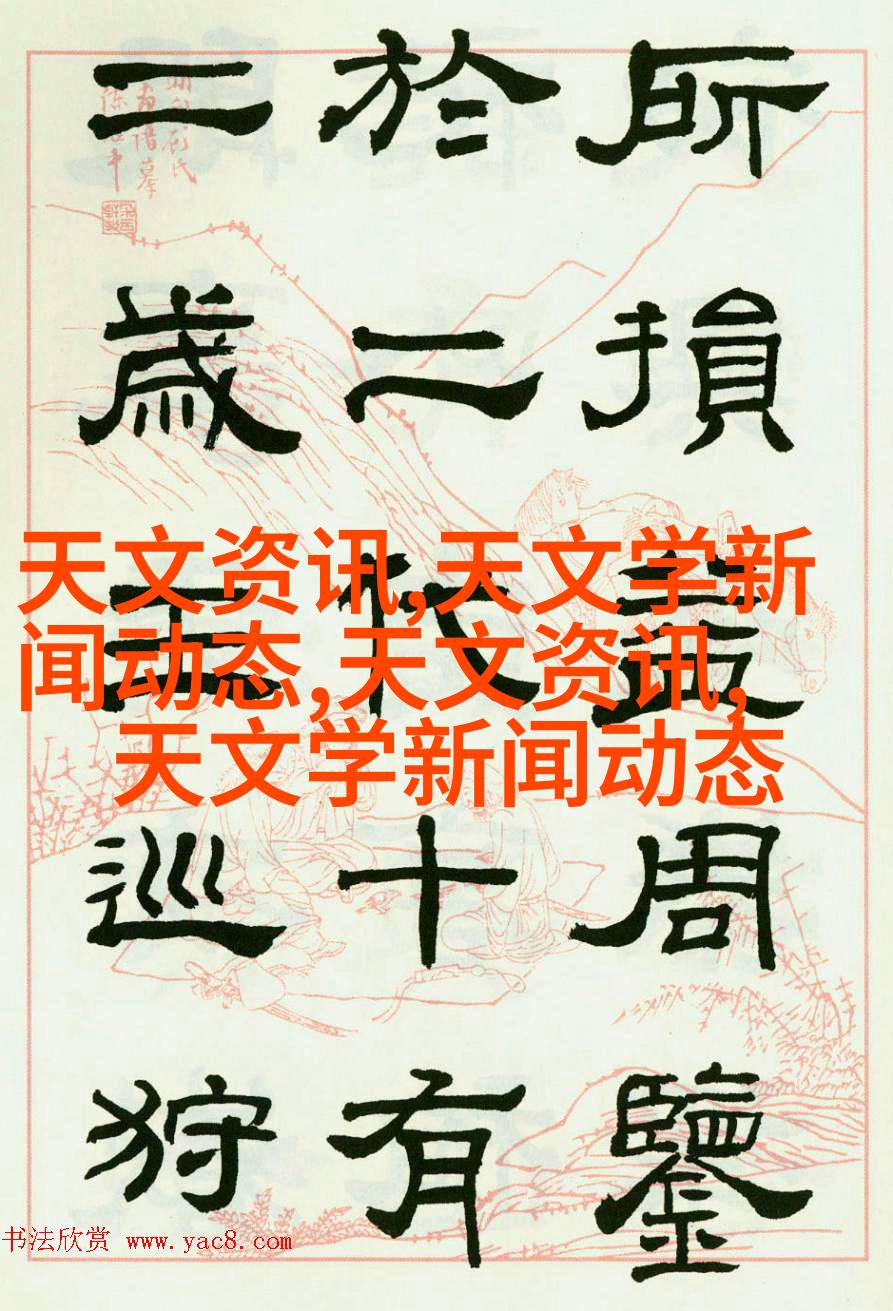 所損益周鑒
於二代十有
二歲王巡狩
天文资讯,天文学新
闻动态,天文资讯,
天文学新闻动态
书法欣赏 www.yac8.com